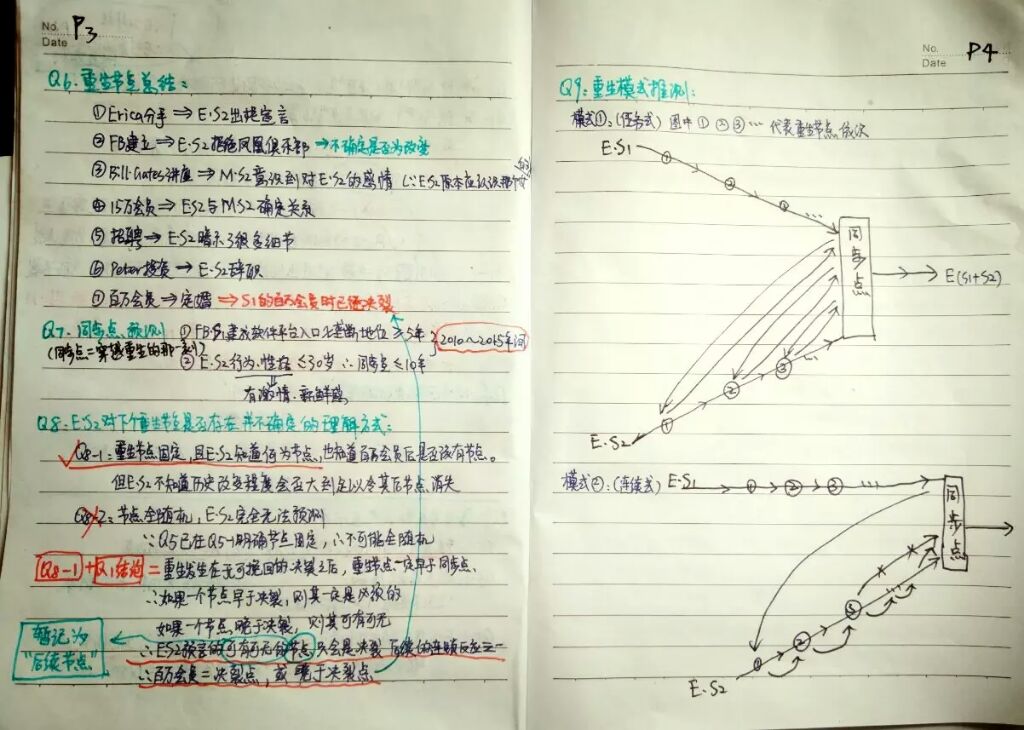 No. P3
Date
Q6. 重生节点总结:
①Erica分手 ⇒ E·S2出提宣言
②FB建立 ⇒ E·S2拒绝凤凰俱乐部 →不确定是否为改变
③Bill·Gates讲座 ⇒ M·S2意识到对E·S2的感情 (∵ES2原本应认识那个
④ 15万会员 ⇒ ES2与MS2确定关系
⑤ 招聘 ⇒ E·S2暗示了很多细节
⑥ Peter投资 ⇒ E·S2辞职
⑦百万会员 ⇒ 完婚 ⇒ S1的百万会员时已经决裂
Q7. 同步点预测 ①FB 建成软件平台入口 地位 ≥5年
(同步点=穿越重生的那一刻) ② E·S2行为·性格 ≤30岁 ∴ 同步点 ≤10年
2010~2015年间
有激情·新鲜感
Q8. E·S2对下个重生节点是否存在并不确定的理解方式:
Q8-1: 重生节点固定, 且E·S2知道何为节点, 也知道百万会员后是否该有节点。
但E·S2不知道历史改变程度会否大到足以令其后节点消失
Q8-2: 节点全随机, E·S2完全无法预测
∵Q5已在Q5-1明确节点固定, ∴不可能全随机
Q8-1 + Q1结论 = 重生发生在无可挽回的决裂之后, 重生节点一定早于同步点.
∴如果一个节点早于决裂, 则其一定是必须的
如果一个节点晚于决裂, 则其可有可无
∴ES2预言的可有可无的节点, 只会是决裂后续的连锁反应之一
暂记为
"后续节点"
∴百万会员=决裂点, 或晚于决裂点
No. P4
Date
Q9. 重生模式推测:
模式①: (任务式) 图中 ① ② ③ … 代表重生节点依次
E·S1
①
②
③ …
同步点
E(S1+S2)
…
③
②
①
E·S2
模式②: (连续式) E·S1 ① ② ③ …
同步点
…
③
②
①
E·S2